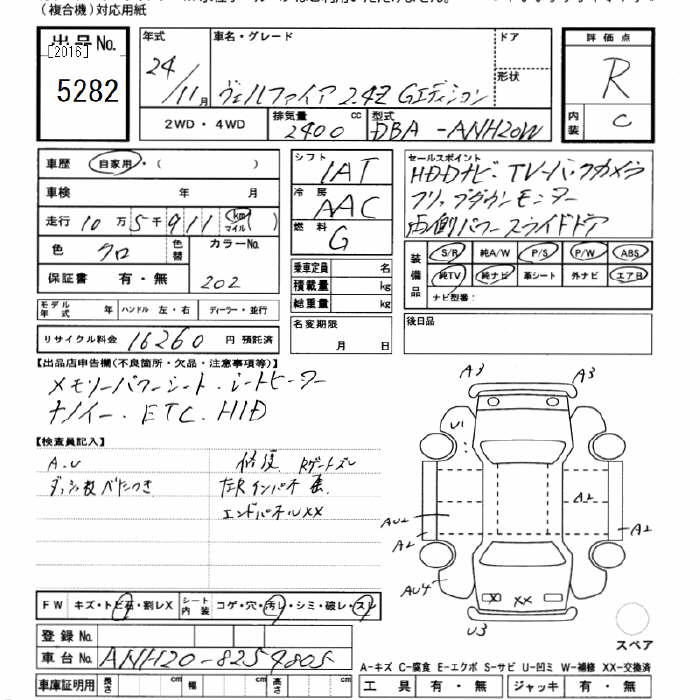 (複合機)対応用紙
出品No. 年式 車名・グレード ドア 評価点
[2016]
5282 24/11月 ヴェルファイア 2.4Z Gエディション 形状 R
2WD・4WD 排気量 2400 cc 型式 DBA-ANH20W 内装 C
車歴 自家用・( ) シフト IAT セールスポイント
HDDナビ・TV・バックカメラ
車検 年 月 冷房 AAC フリップダウンモニター
走行 10万5千911 km マイル ( ) 燃料 G 両側パワースライドドア
色 クロ 色替 カラーNo. 202
保証書 有・無
乗車定員 名
積載量 kg
総重量 kg
装備品 S/R 純A/W P/S P/W ABS
純TV 純ナビ 革シート 外ナビ エアB
ナビ型番:
モデル年式 年 ハンドル 左・右 ディーラー・並行
名変期限 月 日
後日品
リサイクル料金 16260 円 預託済
【出品店申告欄(不良箇所・欠品・注意事項等)】
メモリーパワーシート・シートヒーター
ナノイー・ETC・HID
【検査員記入】
A.U 修復 Rゲートズレ
ダッシュ板ベたつき 左Rインパネ
エンドパネルXX
A3 A3
U1
A2
AU2 A2
A2
AU4
X XX
U3
FW キズ・トビ石・割レX シート内装 コゲ・穴・汚レ・シミ・破レ・スレ
スペア
登録No.
車台No. ANH20-8259805
A-キズ C-腐食 E-エクボ S-サビ U-凹ミ W-補修 XX-交換済
車庫証明用 長さ cm 幅 cm 高さ cm 工具 有・無 ジャッキ 有・無